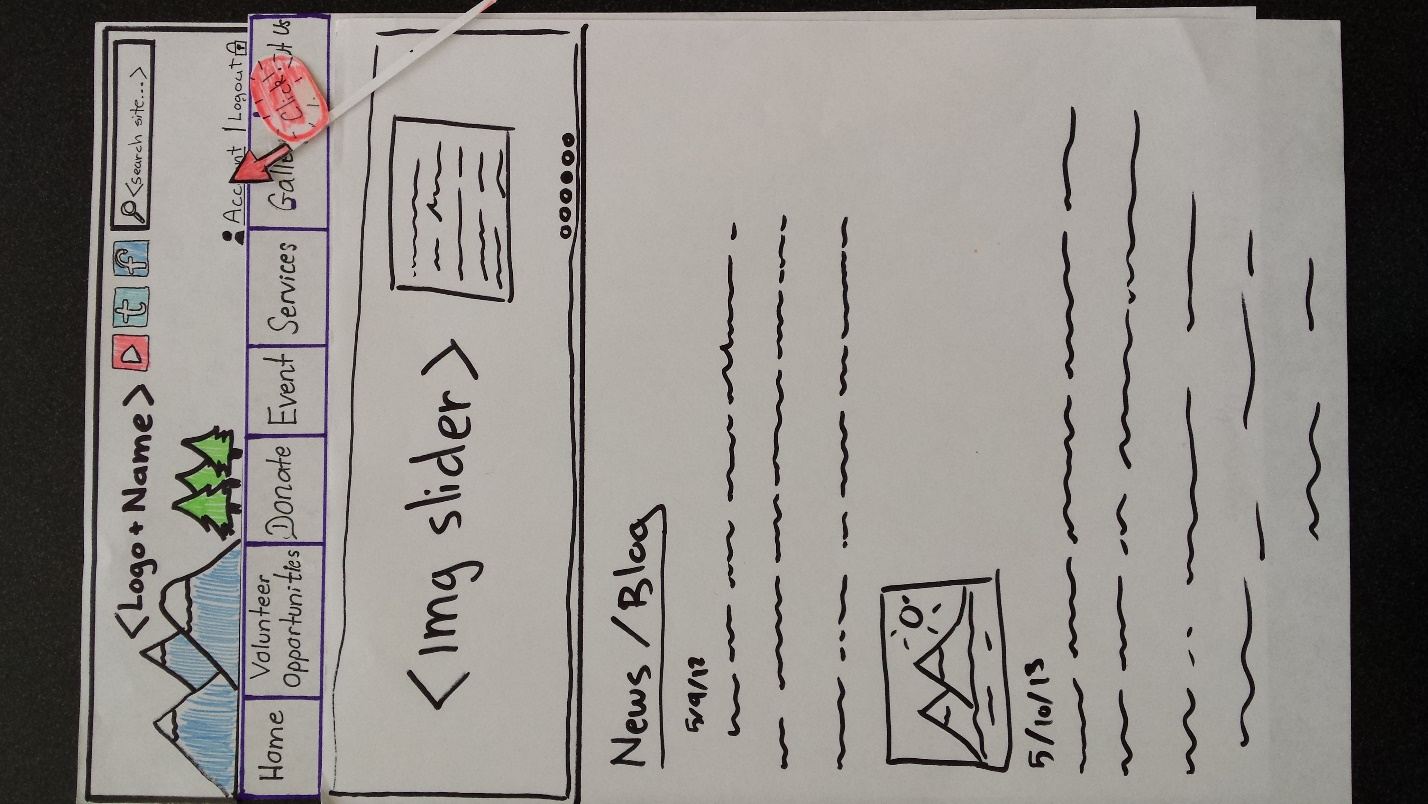 <Logo + Name>
t f
<search site...>
Account | Logout
Home
Volunteer
Opportunities
Donate
Event
Services
Click!
Us
<img slider>
News / Blog
5/9/13
5/10/13